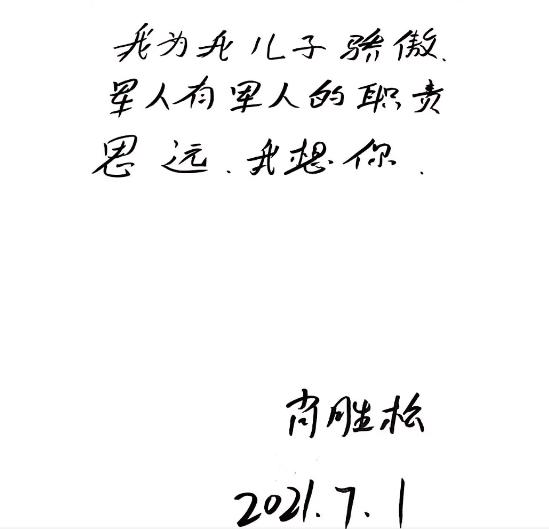 我为我儿子骄傲.
军人有军人的职责
思远.我想你.
肖胜松
2021.7.1